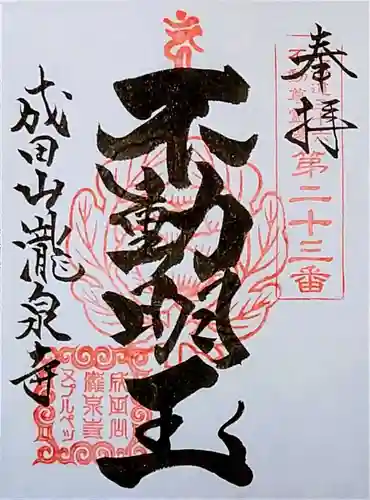 奉拝
第二十三番
不動明王
成田山瀧泉寺
成田山
瀧泉寺